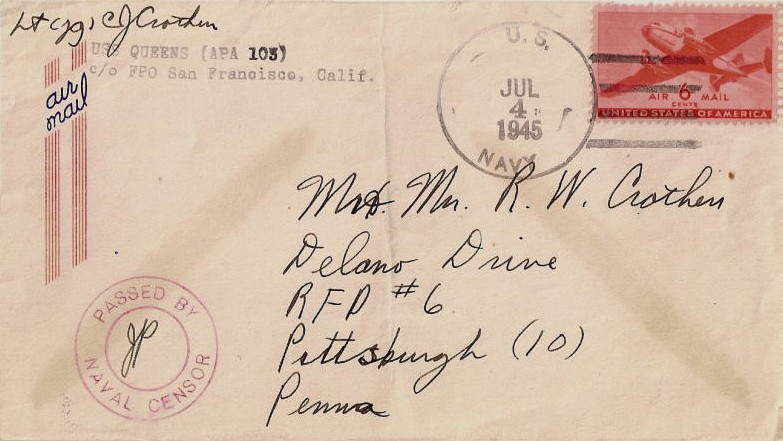 Lt (jg) C J Crothers
USS QUEENS (APA 103)
c/o FPO San Francisco, Calif.
air
mail
U. S.
JUL
4
1945
NAVY
AIR 6 MAIL
CENTS
UNITED STATES OF AMERICA
Mr. R. W. Crothers
Delano Drive
RFD #6
Pittsburgh (10)
Penna
PASSED BY
JP
NAVAL CENSOR